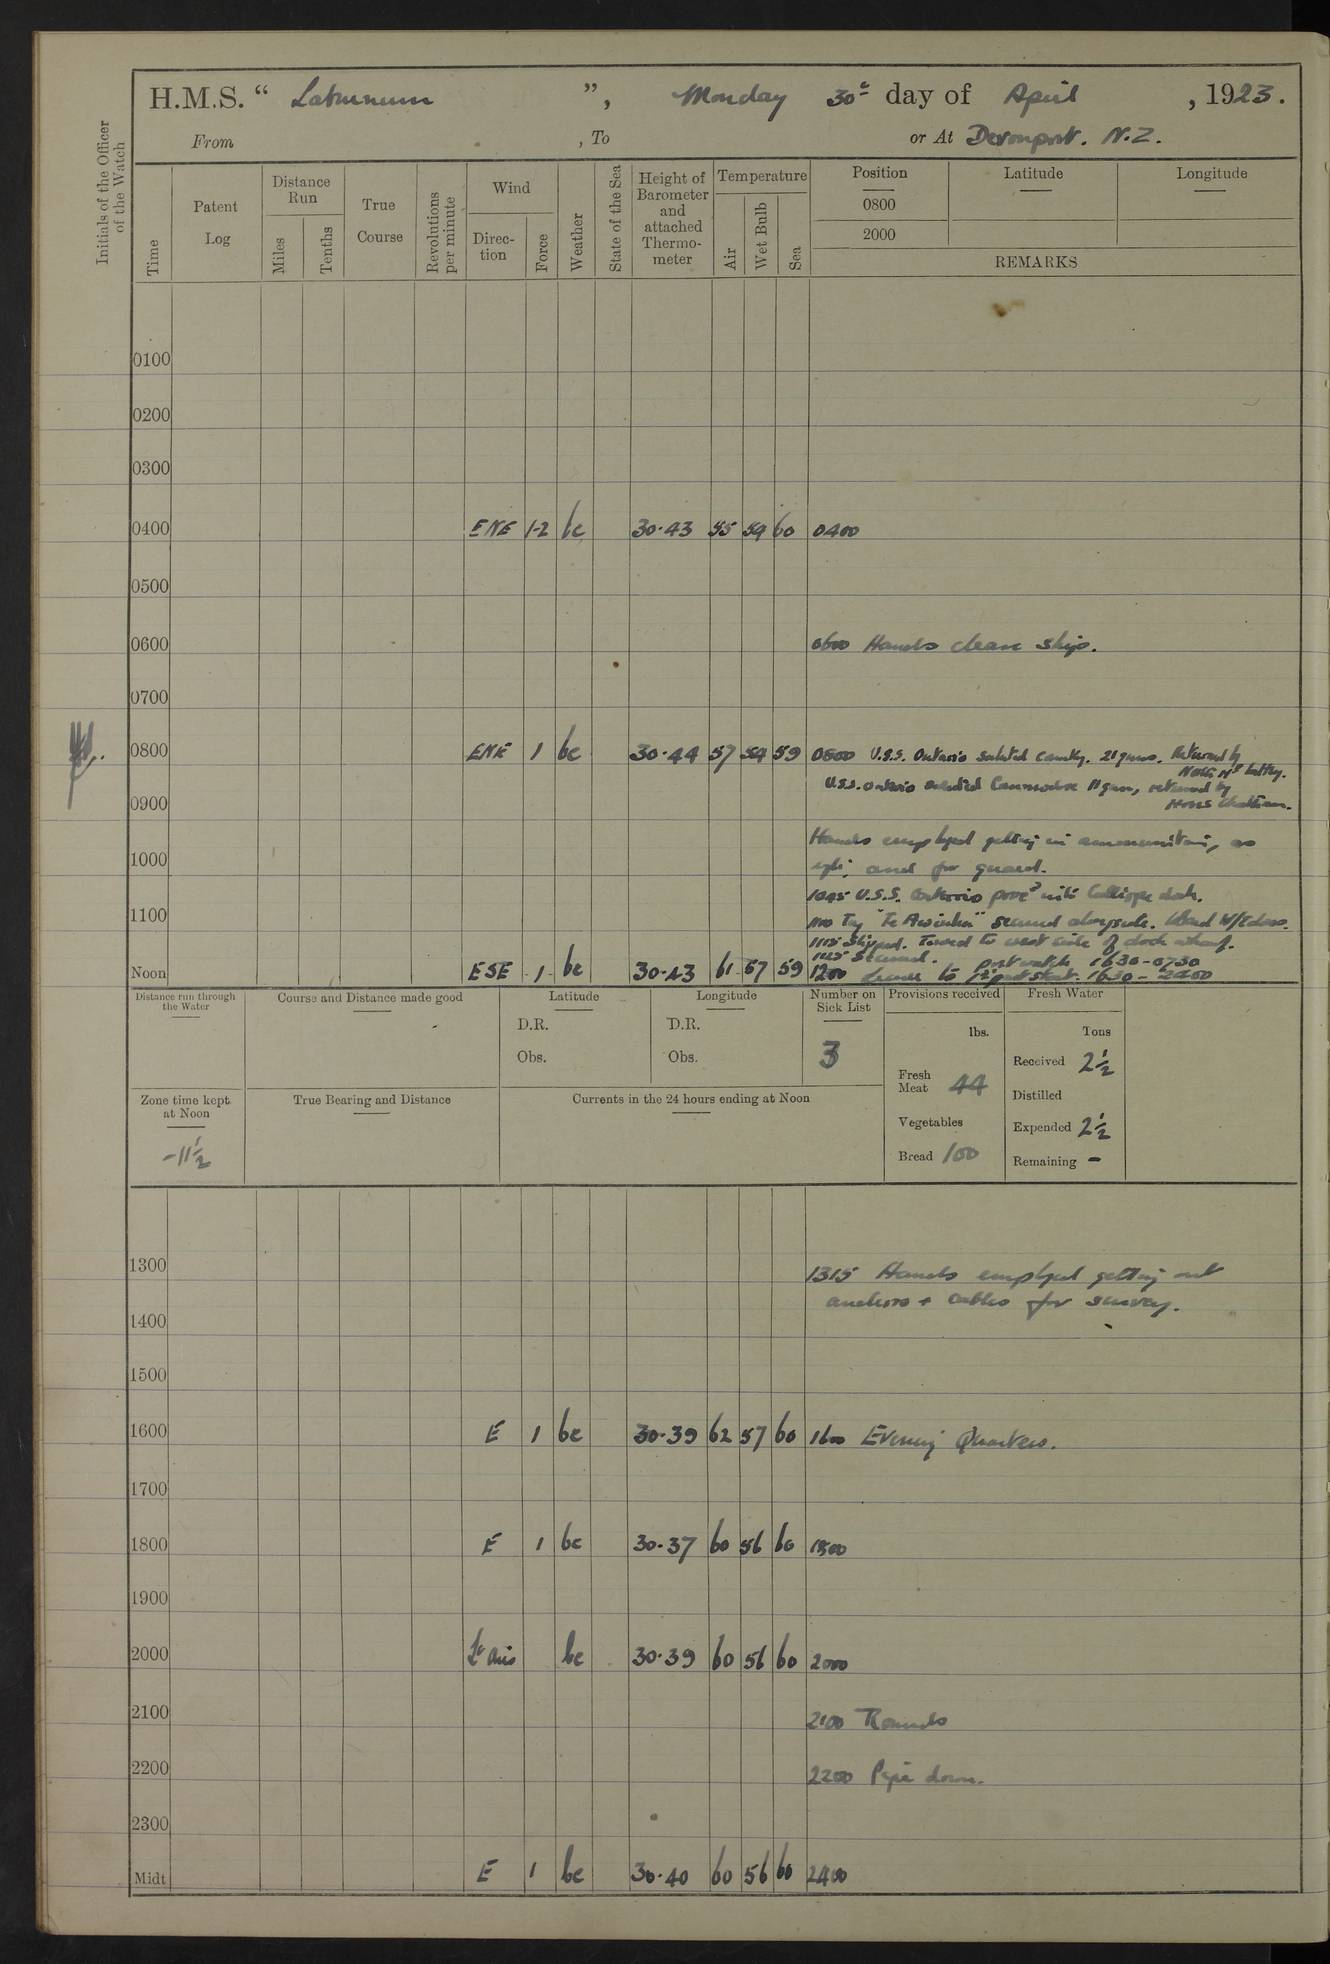 H.M.S. “ Laburnum ”, Monday 30th day of April , 1923.
From , To or At Devonport. N.Z.
Initials of the Officer of the Watch
Time
Patent Log
Distance Run
Miles
Tenths
True Course
Revolutions per minute
Wind
Direc-tion
Force
Weather
State of the Sea
Height of Barometer and attached Thermo-meter
Temperature
Air
Wet Bulb
Sea
Position
0800
2000
Latitude
Longitude
REMARKS
0100
0200
0300
0400 ENE 1-2 bc 30.43 55 54 60 0400
0500
0600 0600 Hands clean ship.
0700
0800 ENE 1 bc 30.44 57 54 59 0800 U.S.S. Ontario saluted country. 21 guns. Returned by
North Hd battery.
U.S.S. Ontario saluted Commodore 11 guns, returned by
H.M.S. Chatham.
0900
Hands employed getting in ammunition, as
and for guard.
1000
1045 U.S.S. Ontario proc'd into Calliope dock.
1100 1100 Tug "Te Awhina" secured alongside.
1115 Slipped. Towed to west side of dock wharf.
1125 Secured. port watch 1630-0730
Noon ESE 1 bc 30.43 61 57 59 1200 Leave to 1st part starb. 1630 - 2400
Distance run through the Water
Course and Distance made good
Latitude
D.R.
Obs.
Longitude
D.R.
Obs.
Number on Sick List
3
Provisions received
lbs.
Fresh Meat 44
Vegetables
Bread 100
Fresh Water
Tons
Received 2½
Distilled
Expended 2½
Remaining -
Zone time kept at Noon
-11½
True Bearing and Distance
Currents in the 24 hours ending at Noon
1300 1315 Hands employed getting out
anchors + cables for survey.
1400
1500
1600 E 1 bc 30.39 62 57 60 1600 Evening Quarters.
1700
1800 E 1 bc 30.37 60 56 60 1800
1900
2000 Lt airs bc 30.39 60 56 60 2000
2100 2100 Rounds
2200 2200 Pipe down.
2300
Midt E 1 bc 30.40 60 56 60 2400